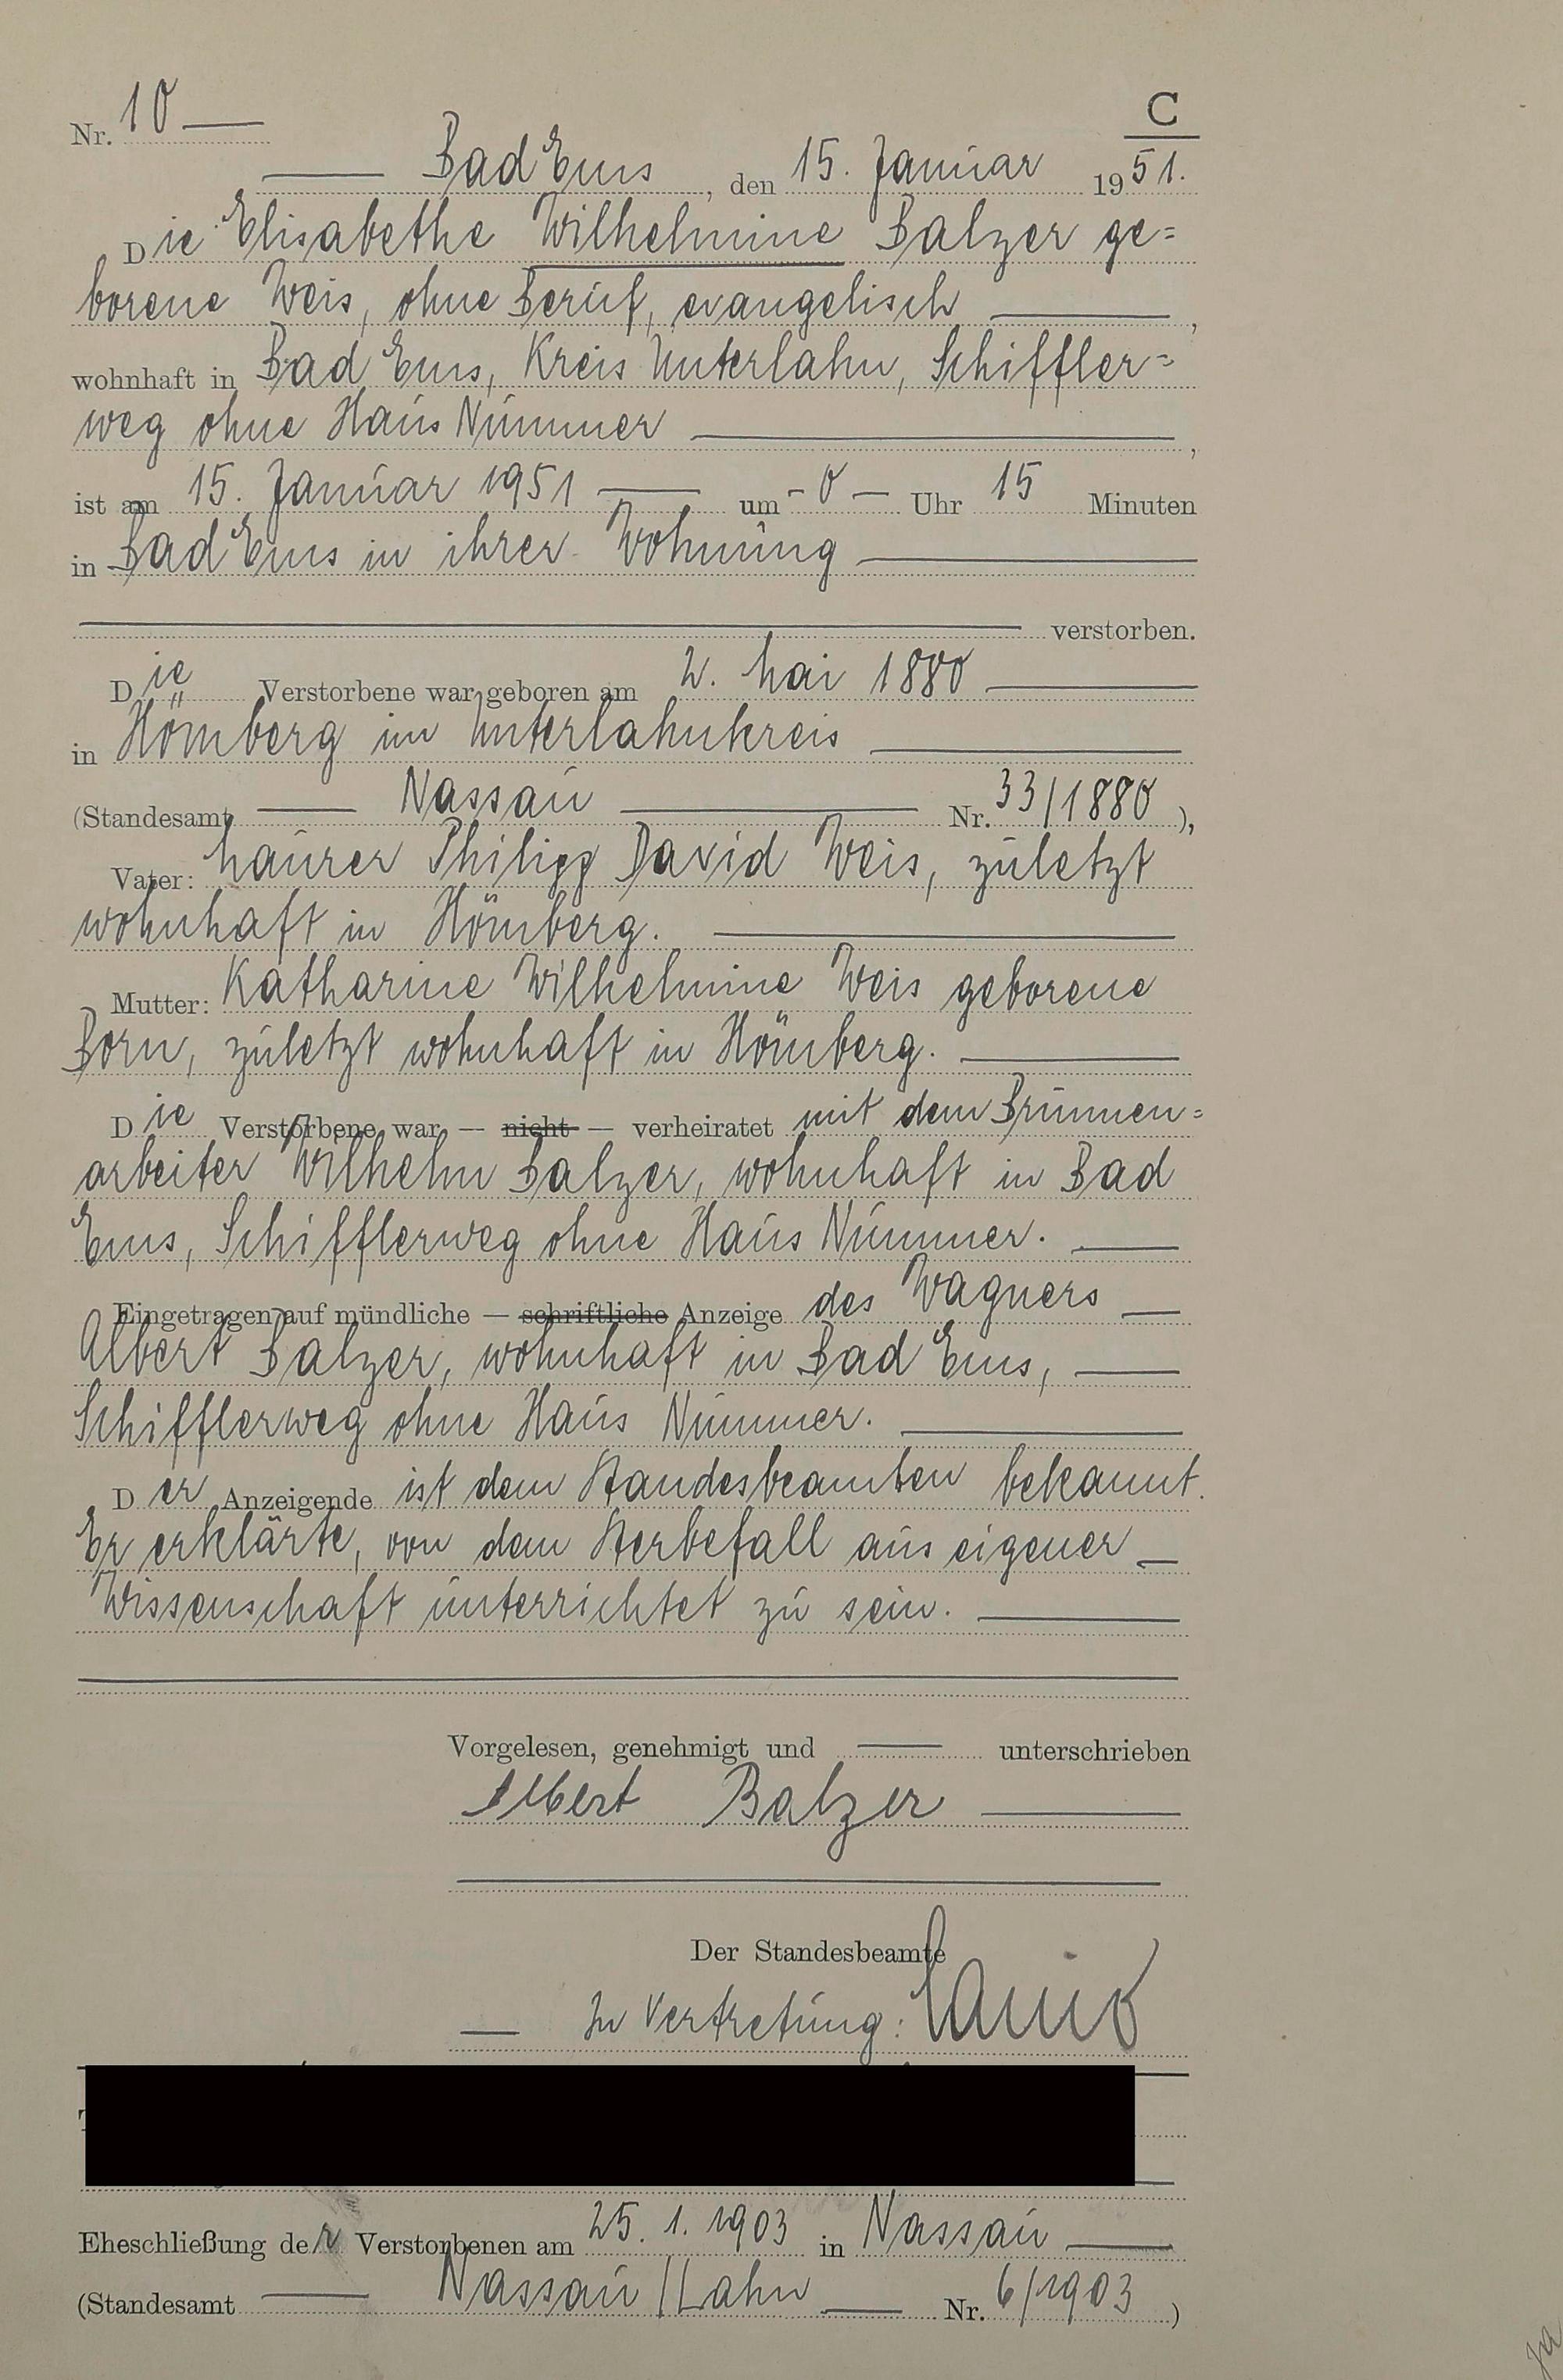 C
Nr. 10
Bad Ems, den 15. Januar 1951.
Die Elisabethe Wilhelmine Balzer ge=
borene Weis, ohne Beruf, evangelisch,
wohnhaft in Bad Ems, Kreis Unterlahn, Schiffler=
weg ohne Haus Nummer,
ist am 15. Januar 1951 um - 0 - Uhr 15 Minuten
in Bad Ems in ihrer Wohnung
verstorben.
Die Verstorbene war geboren am 2. Mai 1880
in Hömberg im Unterlahnkreis
(Standesamt Nassau Nr. 33/1880),
Vater: Maurer Philipp David Weis, zuletzt
wohnhaft in Hömberg.
Mutter: Katharine Wilhelmine Weis geborene
Born, zuletzt wohnhaft in Hömberg.
Die Verstorbene war — nicht — verheiratet mit dem Brunnen=
arbeiter Wilhelm Balzer, wohnhaft in Bad
Ems, Schifflerweg ohne Haus Nummer.
Eingetragen auf mündliche — schriftliche Anzeige des Wagners
Albert Balzer, wohnhaft in Bad Ems,
Schifflerweg ohne Haus Nummer.
Der Anzeigende ist dem Standesbeamten bekannt.
Er erklärte, von dem Sterbefall aus eigener
Wissenschaft unterrichtet zu sein.
Vorgelesen, genehmigt und unterschrieben
Albert Balzer
Der Standesbeamte
In Vertretung:
Eheschließung der Verstorbenen am 25. 1. 1903 in Nassau
(Standesamt Nassau/Lahn Nr. 6/1903)